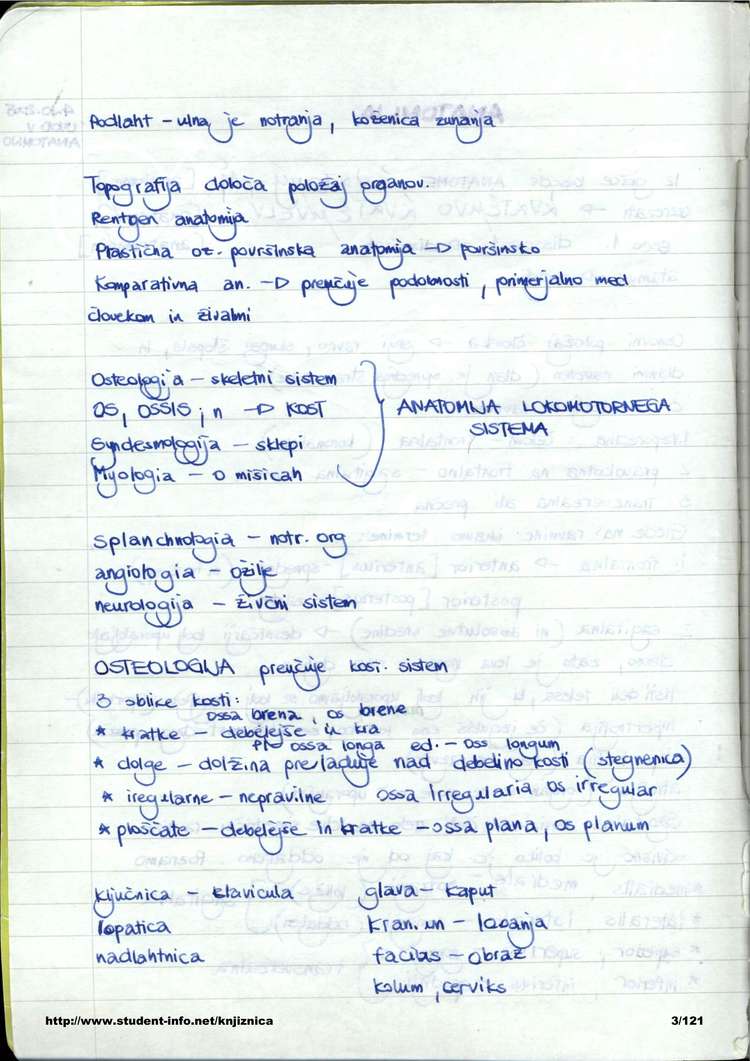 Podlaht – ulna je notranja, koženica zunanja
Topografija določa položaj organov.
Rentgen anatomija
Plastična oz. površinska anatomija → površinsko
Komparativna an. → preučuje podobnosti, primerjalno med
človekom in živalmi
Osteologija – skeletni sistem
OS, OSSIS; n → KOST
Syndesmologija – sklepi
Myologia – o mišicah
ANATOMIJA LOKOMOTORNEGA
SISTEMA
Splanchnologia – notr. org
angiologia – ožilje
neurologija – živčni sistem
OSTEOLOGIJA preučuje kost. sistem
3 oblike kosti:
ossa brena, os brene
* kratke – debelejše in kra
pl ossa longa ed. – oss longum
* dolge – dolžina prevladuje nad debelino kosti (stegnenica)
* iregularne – nepravilne ossa Irregularia os irregular
* ploščate – debelejše in kratke – ossa plana, os planum
ključnica – klavicula
lopatica
nadlahtnica
glava – kaput
kran.un – lobanja
facias – obraz
kolum, cerviks
http://www.student-info.net/knjiznica
3/121